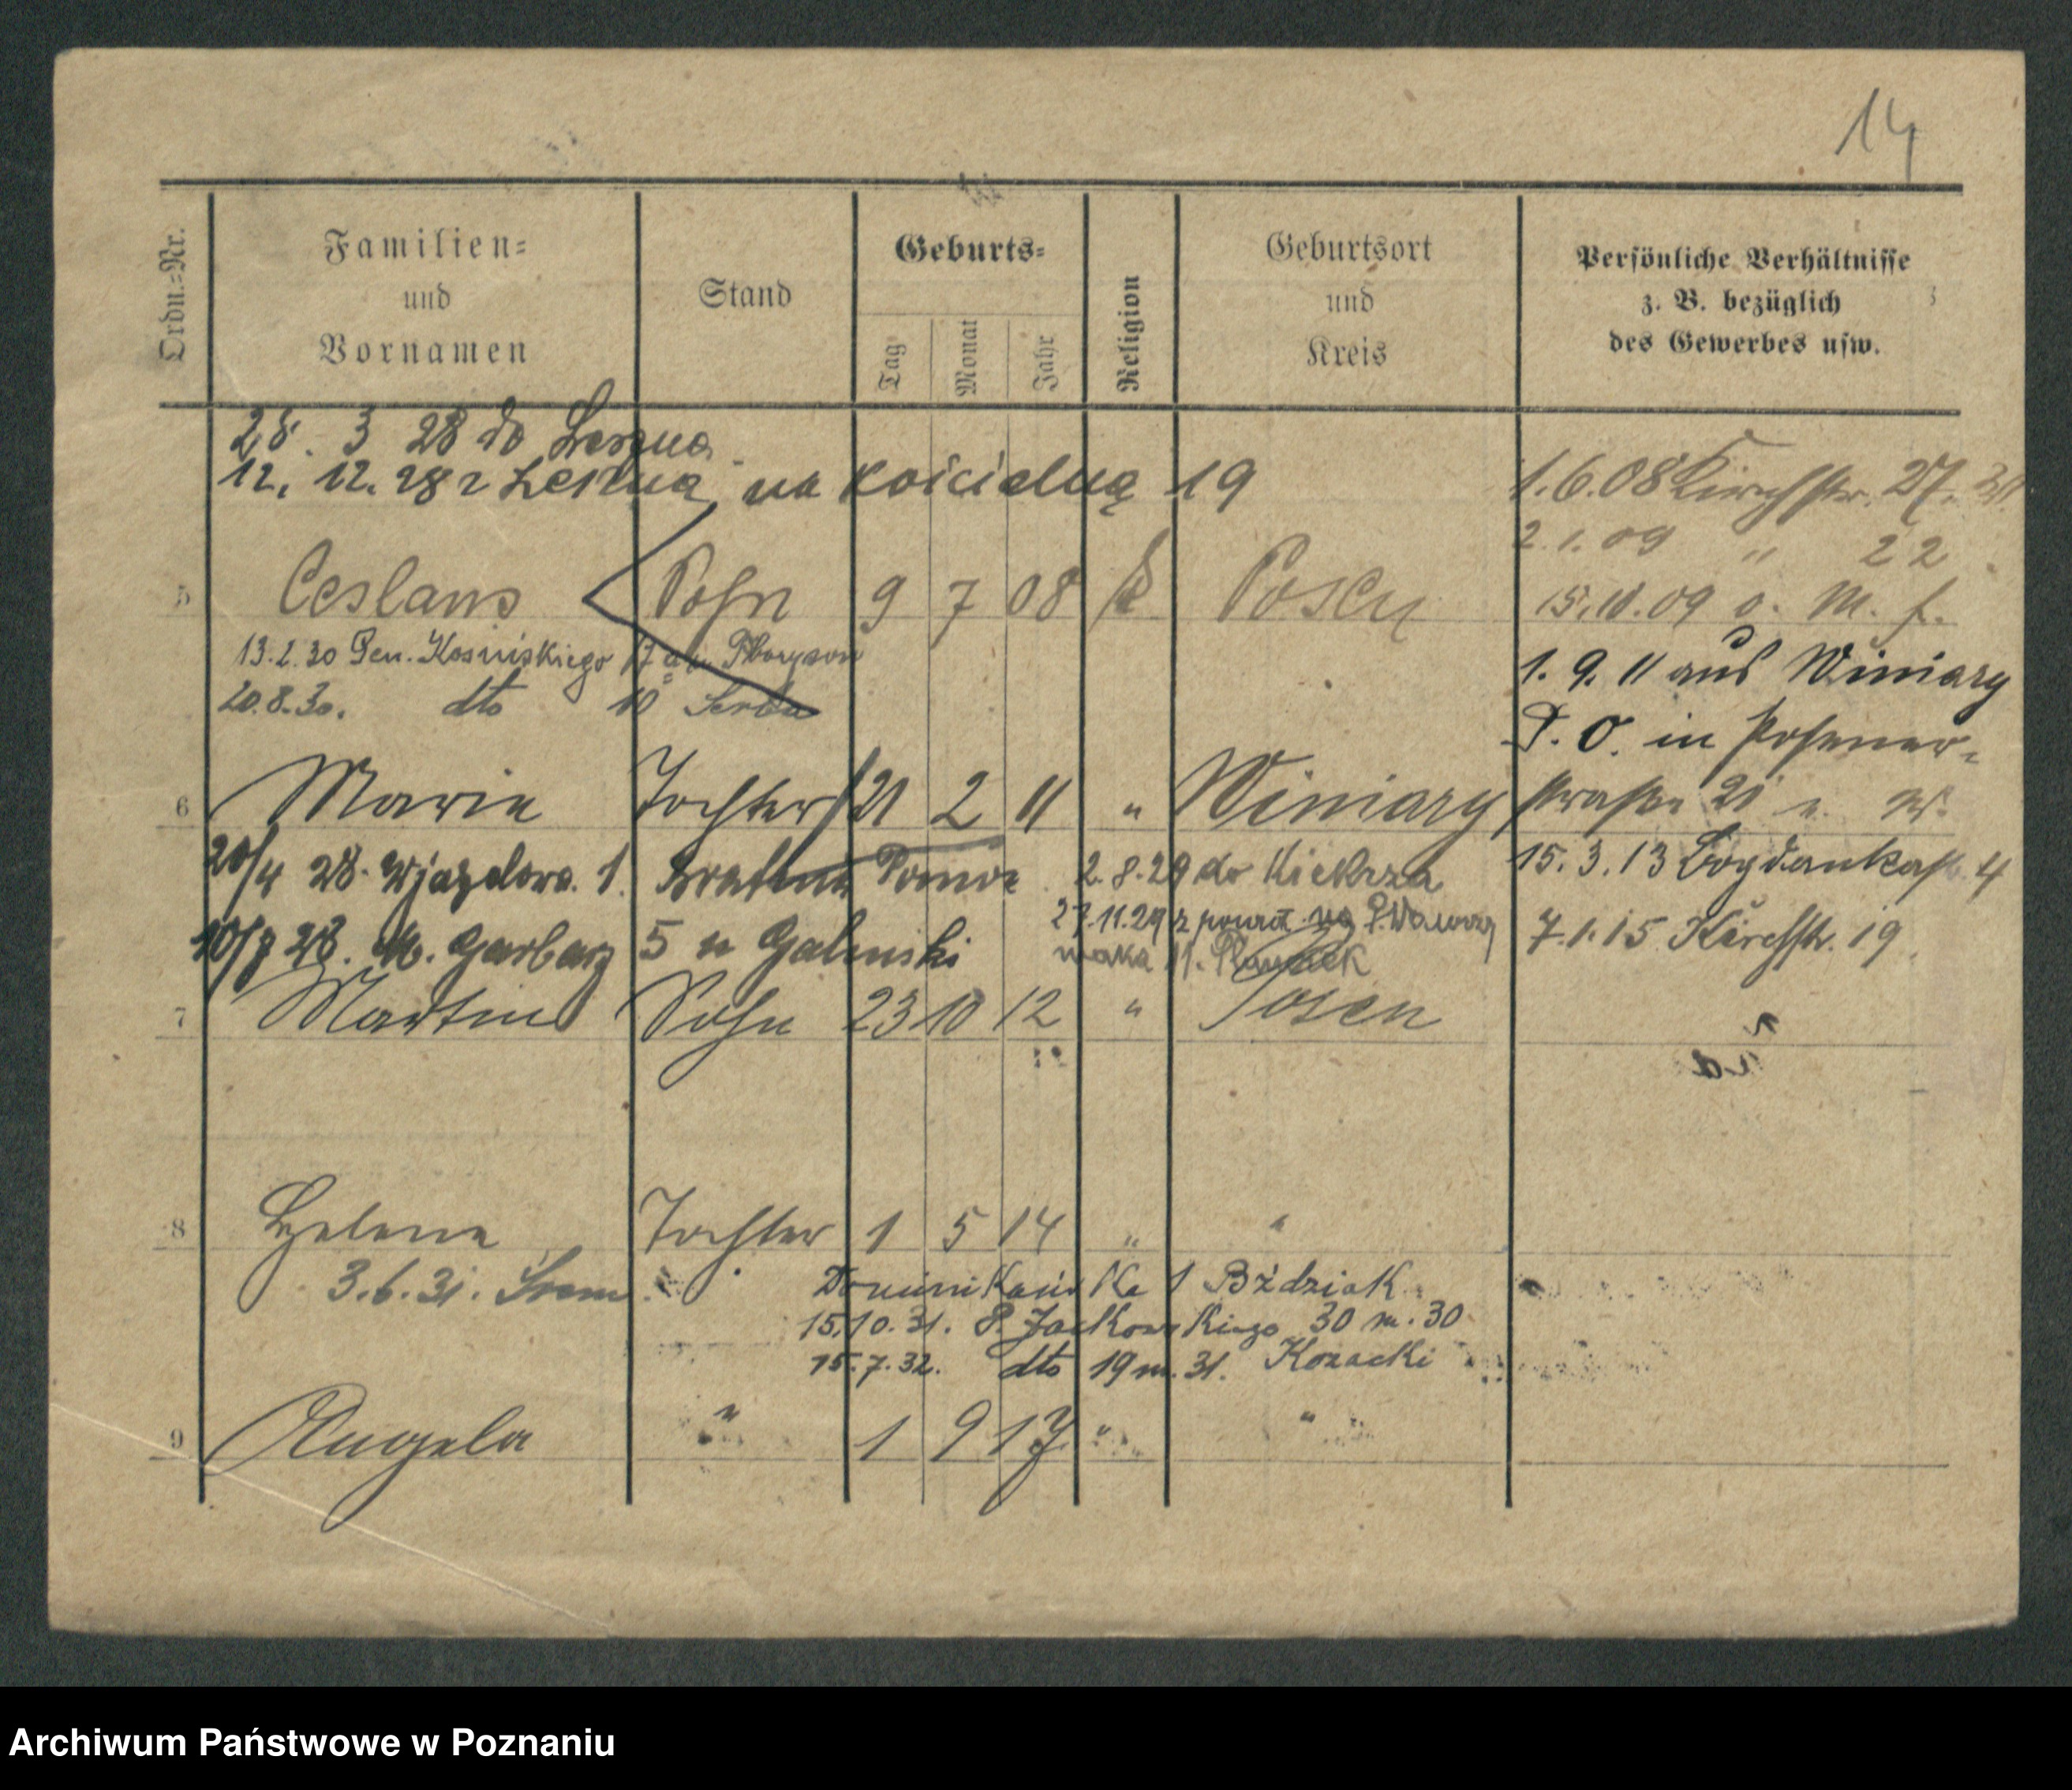 14
Ordn.=Nr.
Familien=
und
Vornamen
Stand
Geburts=
Tag
Monat
Jahr
Religion
Geburtsort
und
Kreis
Persönliche Verhältnisse
z. B. bezüglich
des Gewerbes usw.
28. 3 28 do Leszna
12. 12. 28 z Leszna, na Kościelną 19
1.6.08 Kirchstr. 27.
2.1.09 " 22
5 Ceslaus Sohn 9 7 08 k Posen
15.10.09 o. M. f.
13.2.30 Gen. Kosińskiego 17
1. 9. 11 aus Winiary
20.8.30. dto 10
P. O. in Posener-
6 Marie Tochter 21 2 11 " Winiary
straße 21 n. W.
20/4 28. Wjazdowa. 1. Bratnia Pomoc
2.8.29 do Kiekrza
15.3.13 Bogdankastr. 4
10/7 28. M. Garbary 5 u Galinski
27.11.29 z powrot. na P. Wawrzy
niaka 11.
7.1.15 Kirchstr. 19
7 Martin Sohn 23 10 12 " Posen
8 Helene Tochter 1 5 14 " "
3.6.31. Srem
Dominikańska 1 Bździak
15.10.31. P. Jackowskiego 30 m. 30
15.7.32. dto 19 m. 31. Kozacki
9 Angela " 1 9 17 " "
Archiwum Państwowe w Poznaniu